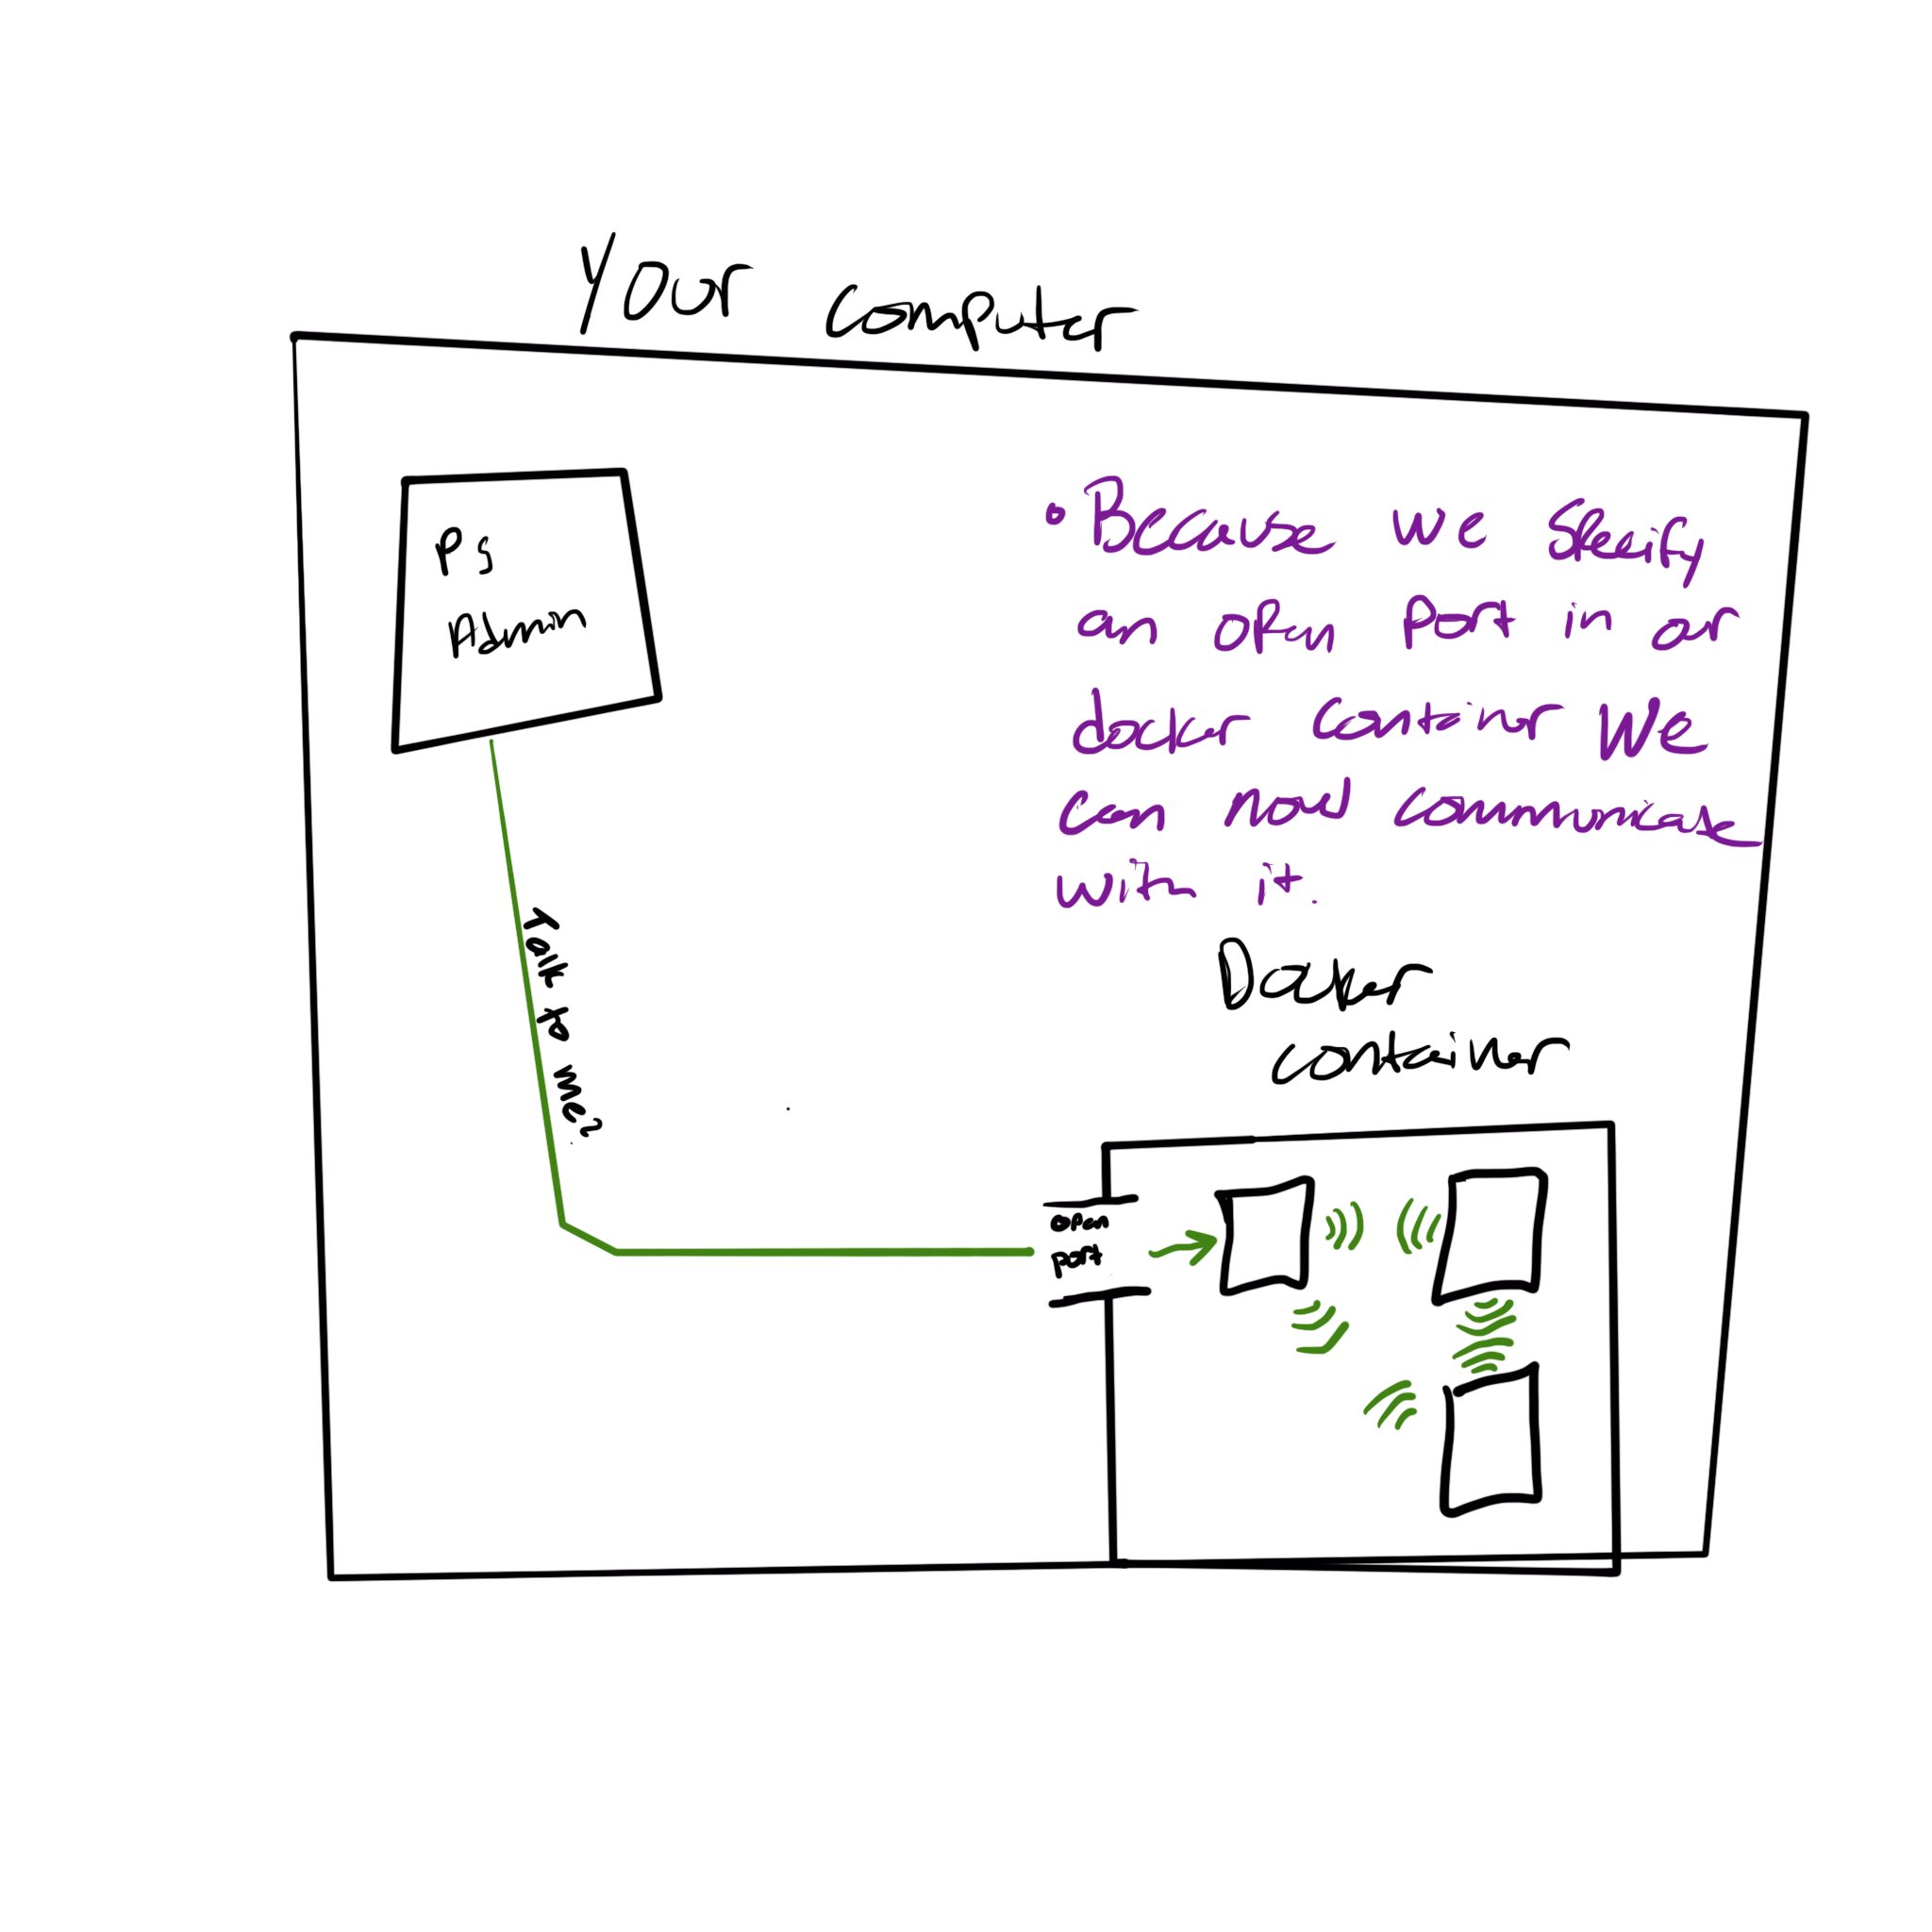 Your computer
Ps
Admin
• Because we specify
an open port in our
docker container we
can now communicate
with it.
Talk to me?
Docker
container
open
port